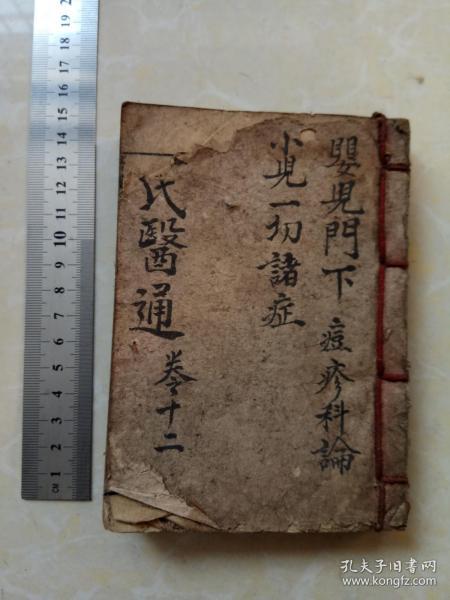 嬰児門下 痘疹科論
小児一切諸症
氏醫通 卷十二
CM 1 2 3 4 5 6 7 8 9 10 11 12 13 14 15 16 17 18 19
孔夫子旧书网
www.kongfz.com